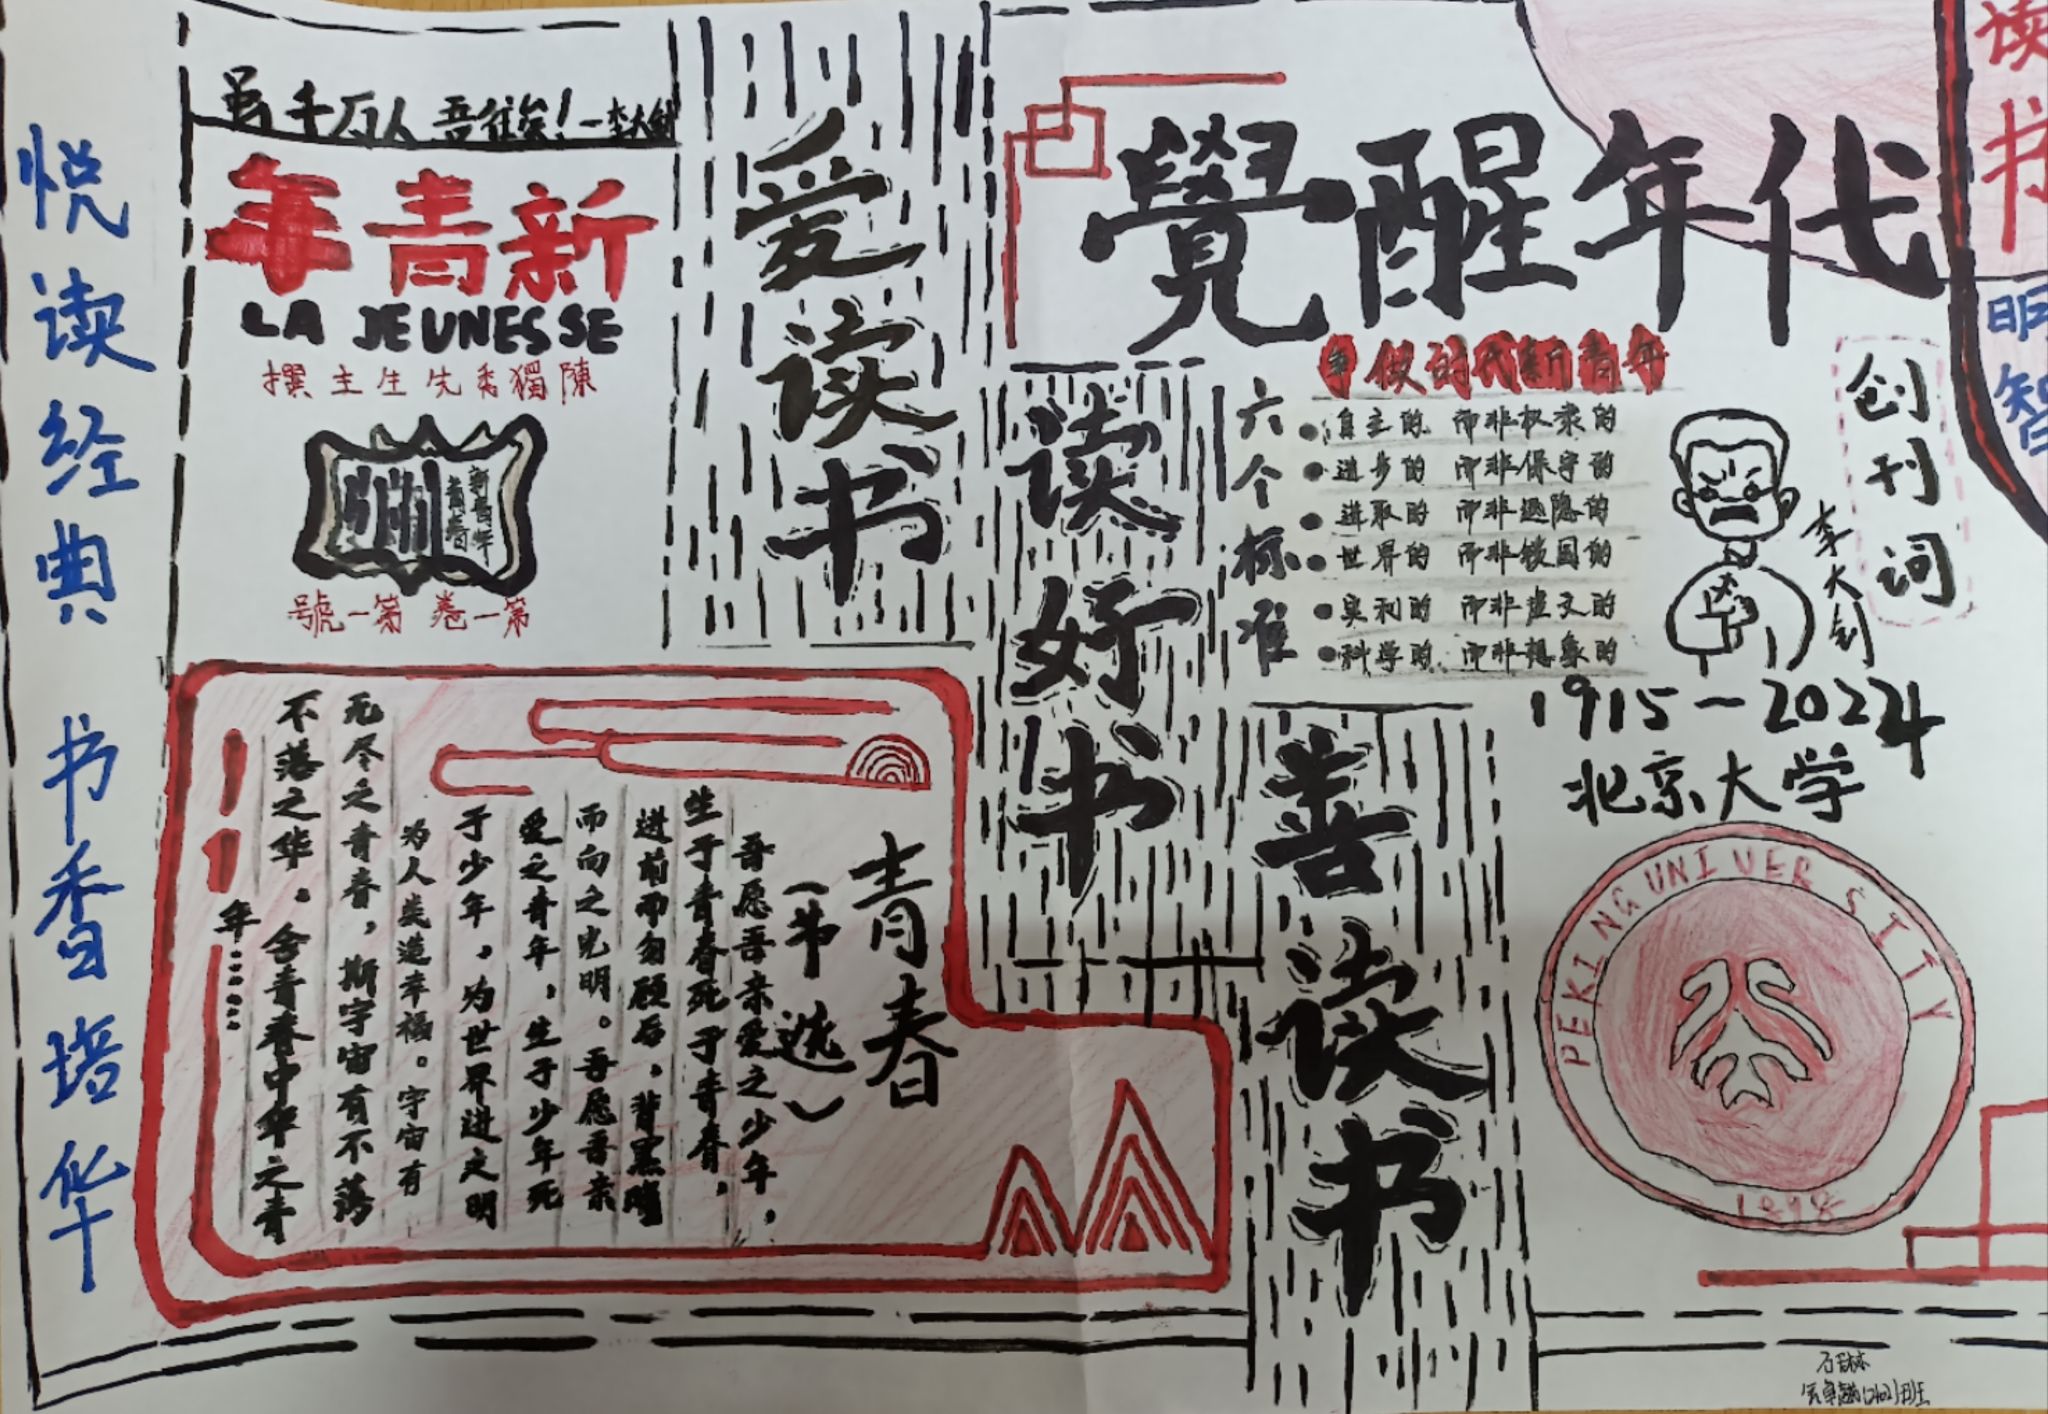 悦读经典 书香培华
虽千万人 吾往矣！—李大钊
年青新
LA JEUNESSE
撰主生先秀獨陳
新青年
青春
號一第 卷一第
爱读书
读好书
善读书
覺醒年代
读书
明智
争做时代新青年
六个标准
自主的 而非奴隶的
进步的 而非保守的
进取的 而非退隐的
世界的 而非锁国的
实利的 而非虚文的
科学的 而非想象的
创刊词
李大钊
1915-2024
北京大学
PEKING UNIVERSITY
1898
青春
（节选）
吾愿吾亲爱之少年，
生于青春死于青春，
进前而勿顾后，背黑暗
而向之光明。吾愿吾亲
爱之青年，生于少年死
于少年，为世界进之明
为人类造幸福。宇宙有
无尽之青春，斯宇宙有不落
不落之华。舍青春中华之青
！！年……